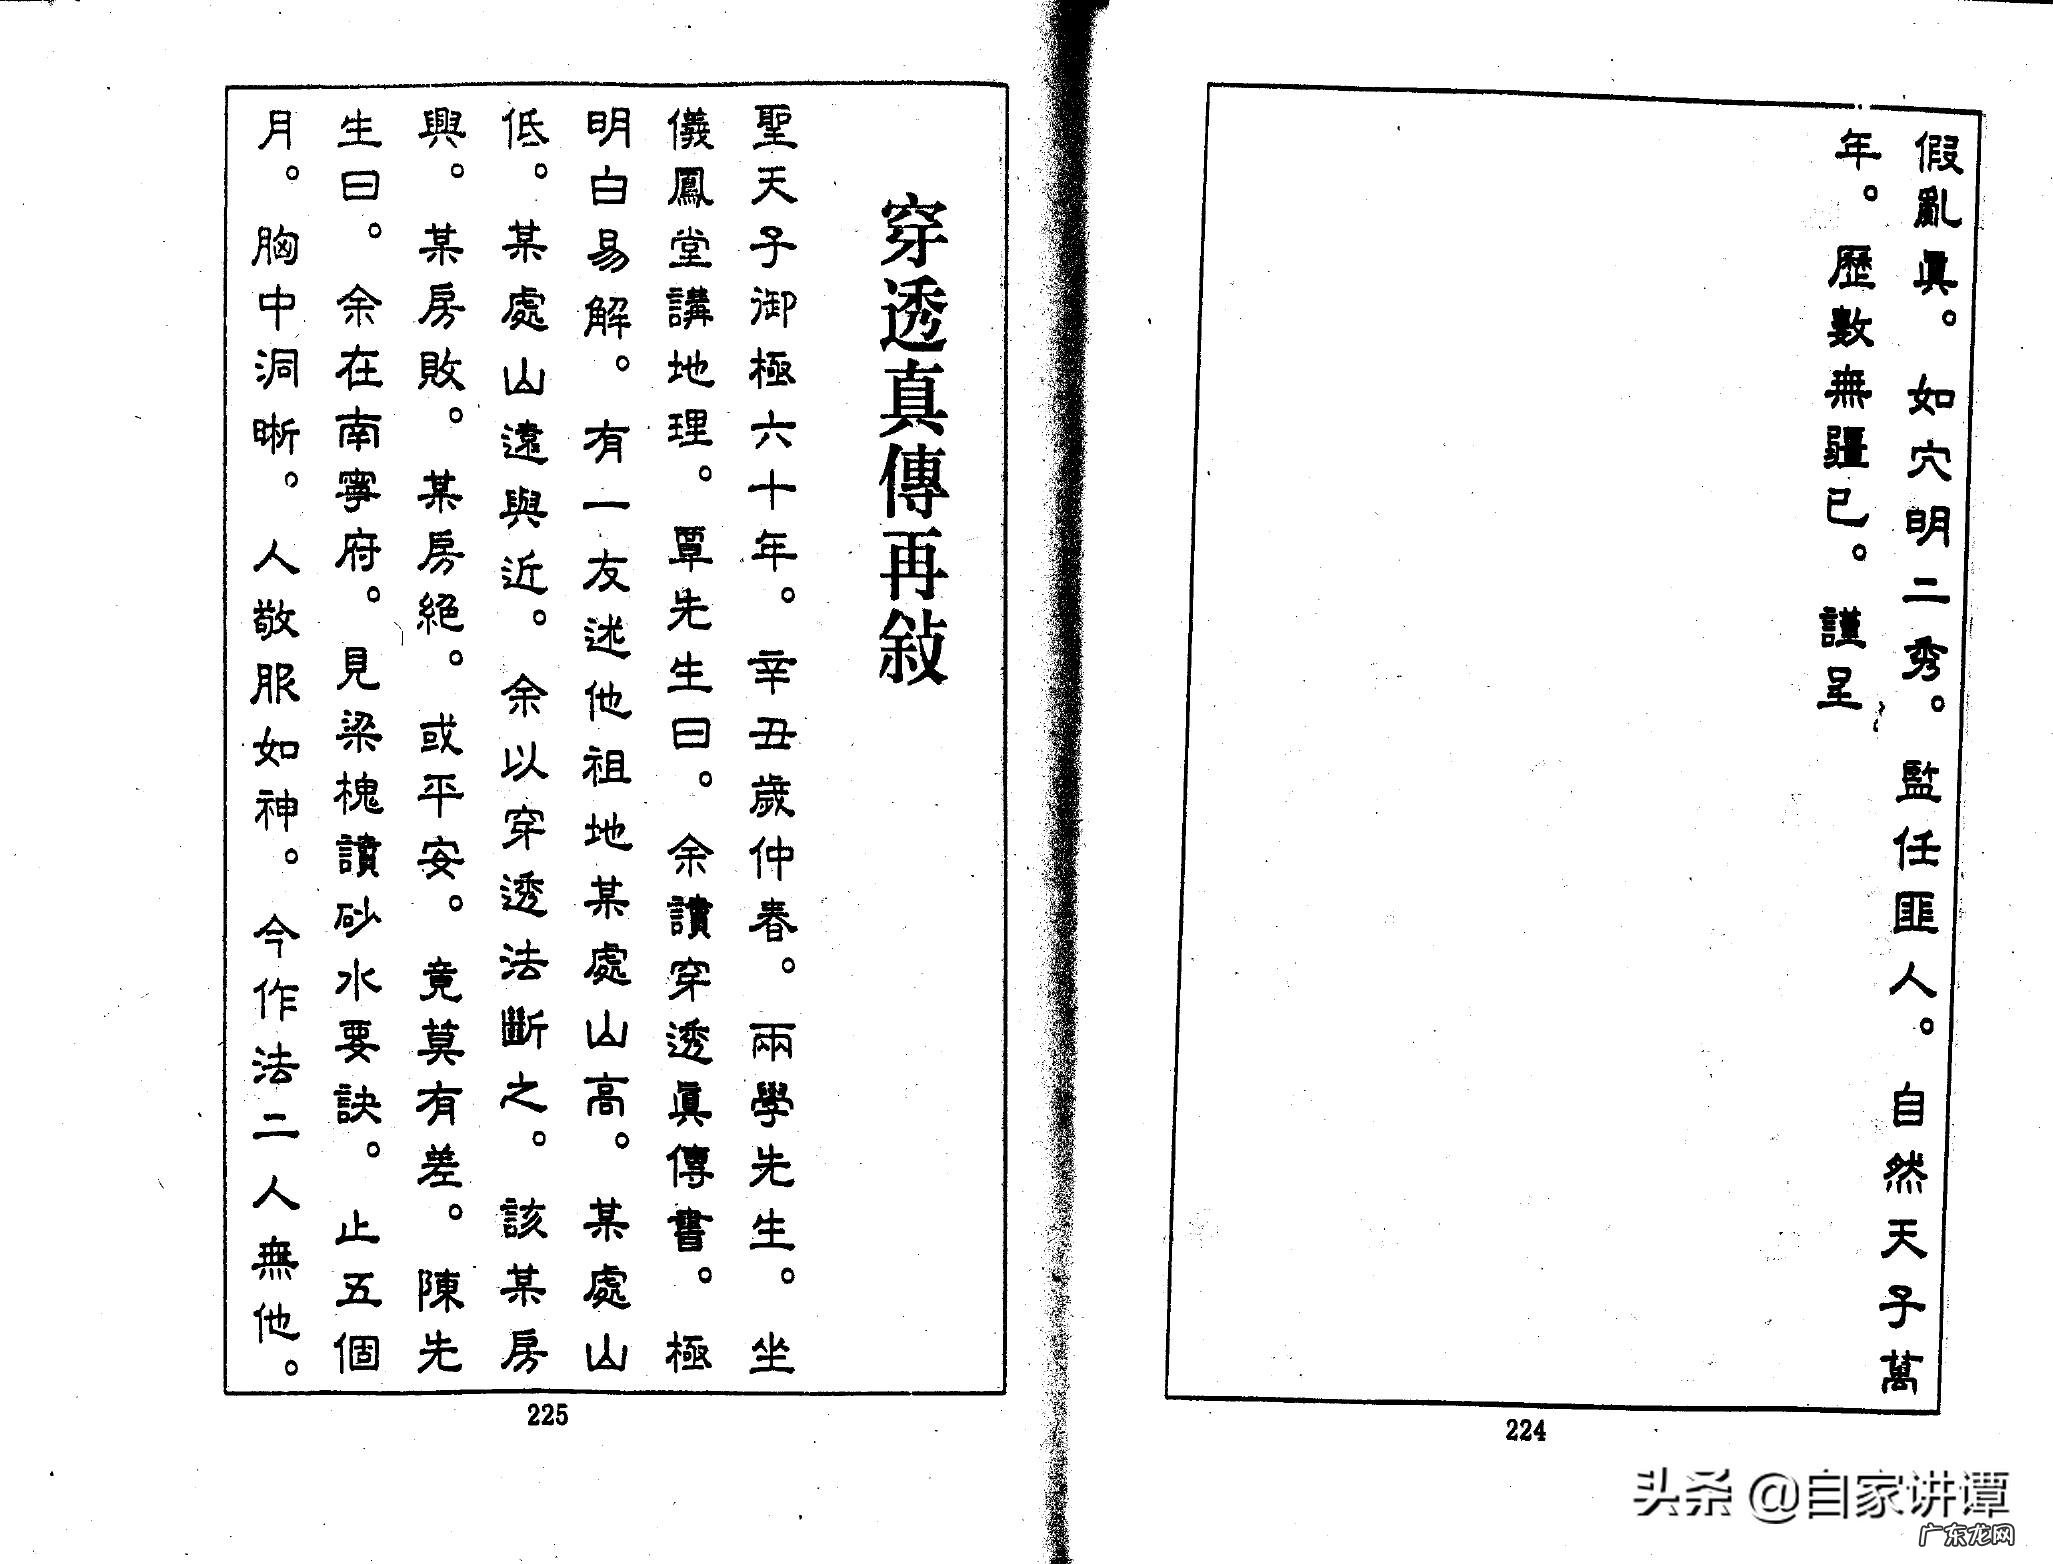 假亂眞。如穴明二秀。監任匪人。自然天子萬
年。歷數無疆已。謹呈
224
穿透真傳再敍
聖天子御極六十年。辛丑歲仲春。兩學先生。坐
儀鳳堂講地理。覃先生曰。余讀穿透眞傳書。極
明白易解。有一友述他祖地某處山高。某處山
低。某處山遠與近。余以穿透法斷之。該某房
興。某房敗。某房絕。或平安。竟莫有差。陳先
生曰。余在南寧府。見梁槐讀砂水要訣。止五個
月。胸中洞晰。人敬服如神。今作法二人無他。
225
头条 @自家讲谭
广东龙网